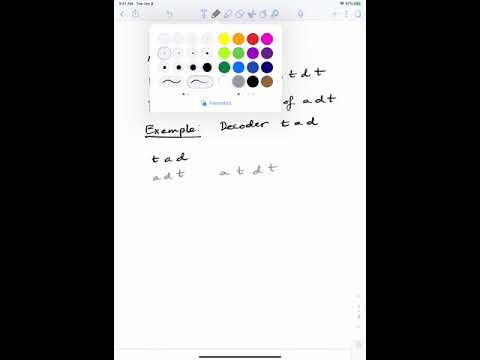 9:41 AM Tue Jan 9
T
Favorites
t d t
of a d t
Example: Decoder t a d
t a d
a d t a t d t